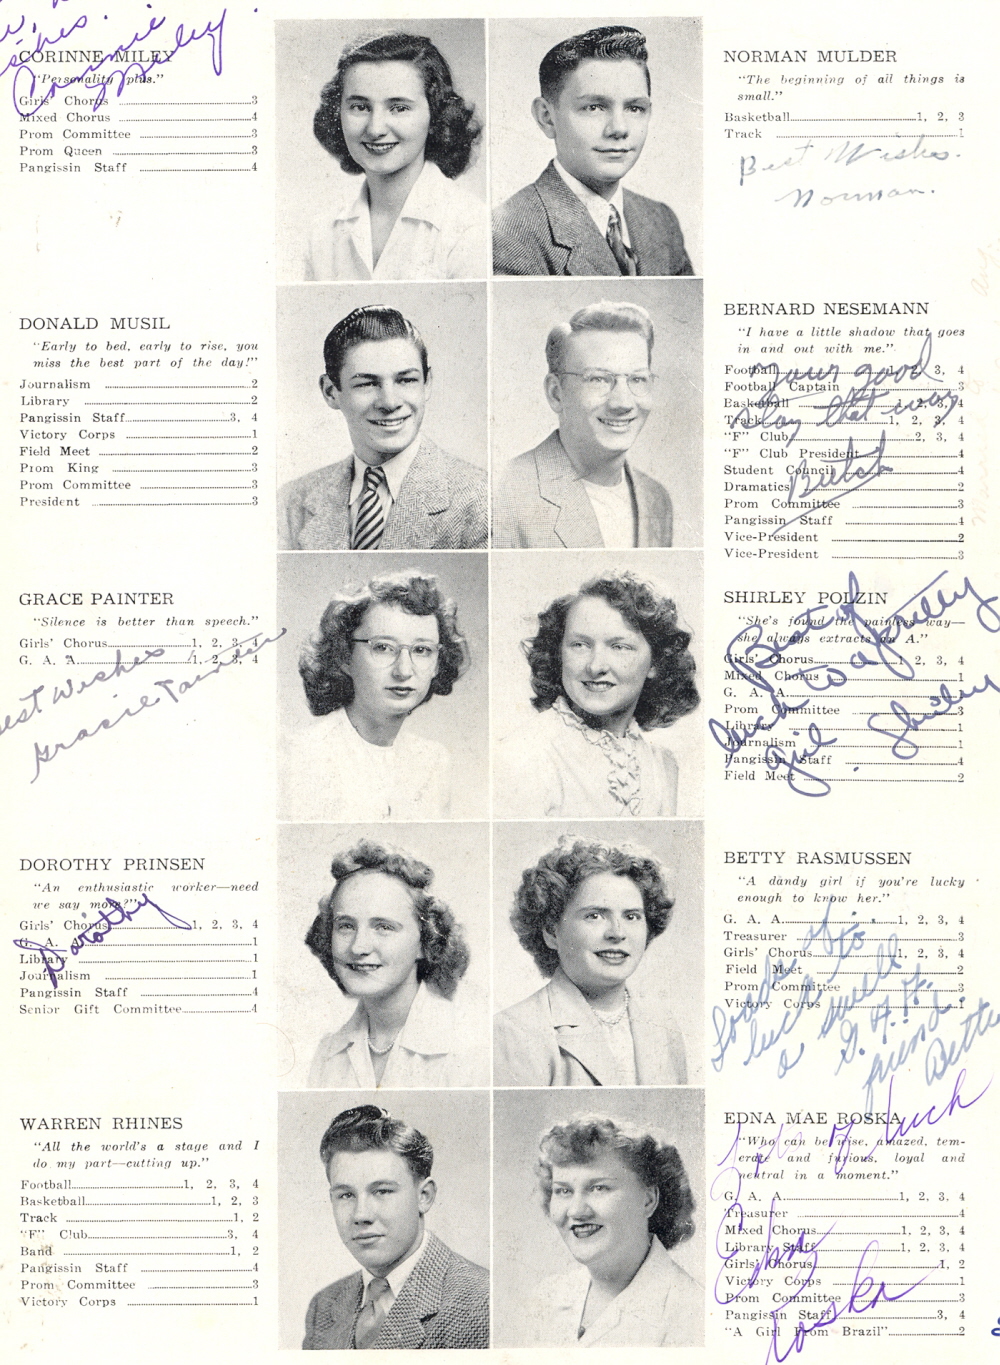 CORINNE MILEY
"Personality plus."
Girls' Chorus 3
Mixed Chorus 4
Prom Committee 3
Prom Queen 3
Pangissin Staff 4
Corinne Miley
DONALD MUSIL
"Early to bed, early to rise, you
miss the best part of the day!"
Journalism 2
Library 2
Pangissin Staff 3, 4
Victory Corps 1
Field Meet 2
Prom King 3
Prom Committee 3
President 3
GRACE PAINTER
"Silence is better than speech."
Girls' Chorus 1, 2, 3, 4
G. A. A. 1, 2, 3, 4
Best Wishes
Gracie Painter
DOROTHY PRINSEN
"An enthusiastic worker—need
we say more?"
Girls' Chorus 1, 2, 3, 4
G. A. A. 1
Library 1
Journalism 1
Pangissin Staff 4
Senior Gift Committee 4
Dorothy
WARREN RHINES
"All the world's a stage and I
do my part—cutting up."
Football 1, 2, 3, 4
Basketball 1, 2, 3
Track 1, 2
"F" Club 3, 4
Band 1, 2
Pangissin Staff 4
Prom Committee 3
Victory Corps 1
NORMAN MULDER
"The beginning of all things is
small."
Basketball 1, 2, 3
Track 1
Best Wishes.
Norman.
BERNARD NESEMANN
"I have a little shadow that goes
in and out with me."
Football 1, 2, 3, 4
Football Captain 3
Basketball 1, 2, 3, 4
Track 1, 2, 3, 4
"F" Club 2, 3, 4
"F" Club President 4
Student Council 4
Dramatics 2
Prom Committee 3
Pangissin Staff 4
Vice-President 2
Vice-President 3
Your good
stay that way
Butch
SHIRLEY POLZIN
"She's found the painless way—
she always extracts an A."
Girls' Chorus 1, 2, 3, 4
Mixed Chorus 1
G. A. A. 1
Prom Committee 3
Library 1
Journalism 1
Pangissin Staff 4
Field Meet 2
Best of
luck to a
girl. Shirley
BETTY RASMUSSEN
"A dandy girl if you're lucky
enough to know her."
G. A. A. 1, 2, 3, 4
Treasurer 3
Girls' Chorus 1, 2, 3, 4
Field Meet 2
Prom Committee 3
Victory Corps 1
Loads of
luck to
a swell
friend.
Betty
EDNA MAE ROSKA
"Who can be wise, amazed, tem-
erate and furious, loyal and
neutral in a moment."
G. A. A. 1, 2, 3, 4
Treasurer 4
Mixed Chorus 1, 2, 3, 4
Library Staff 1, 2, 3, 4
Girls' Chorus 1, 2
Victory Corps 1
Prom Committee 3
Pangissin Staff 3, 4
"A Girl From Brazil" 2
of luck
Edna
Roska